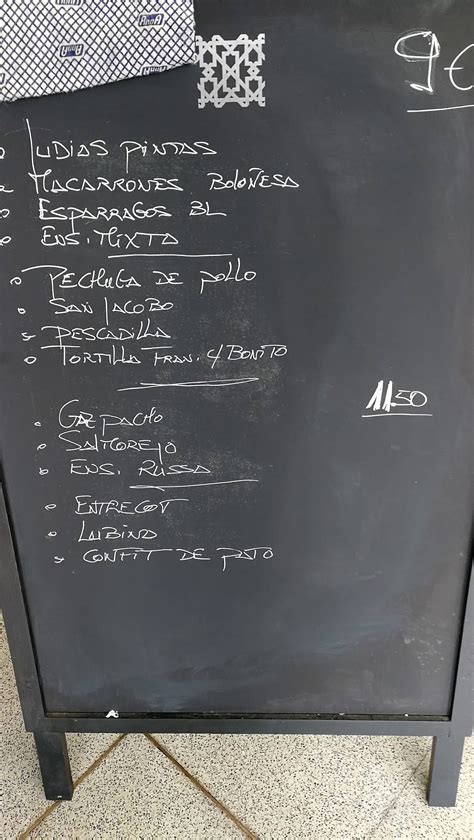 AnnA
AnnA
AnnA
9€
Judias pintas
Macarrones Boloñesa
Esparragos BL
Ens. Mixta
Pechuga de pollo
San Jacobo
Pescadilla
Tortilla Fran. y Bonito
11.50
Gazpacho
Salmorejo
Ens. Russa
Entrecot
Lubina
Confit de pato